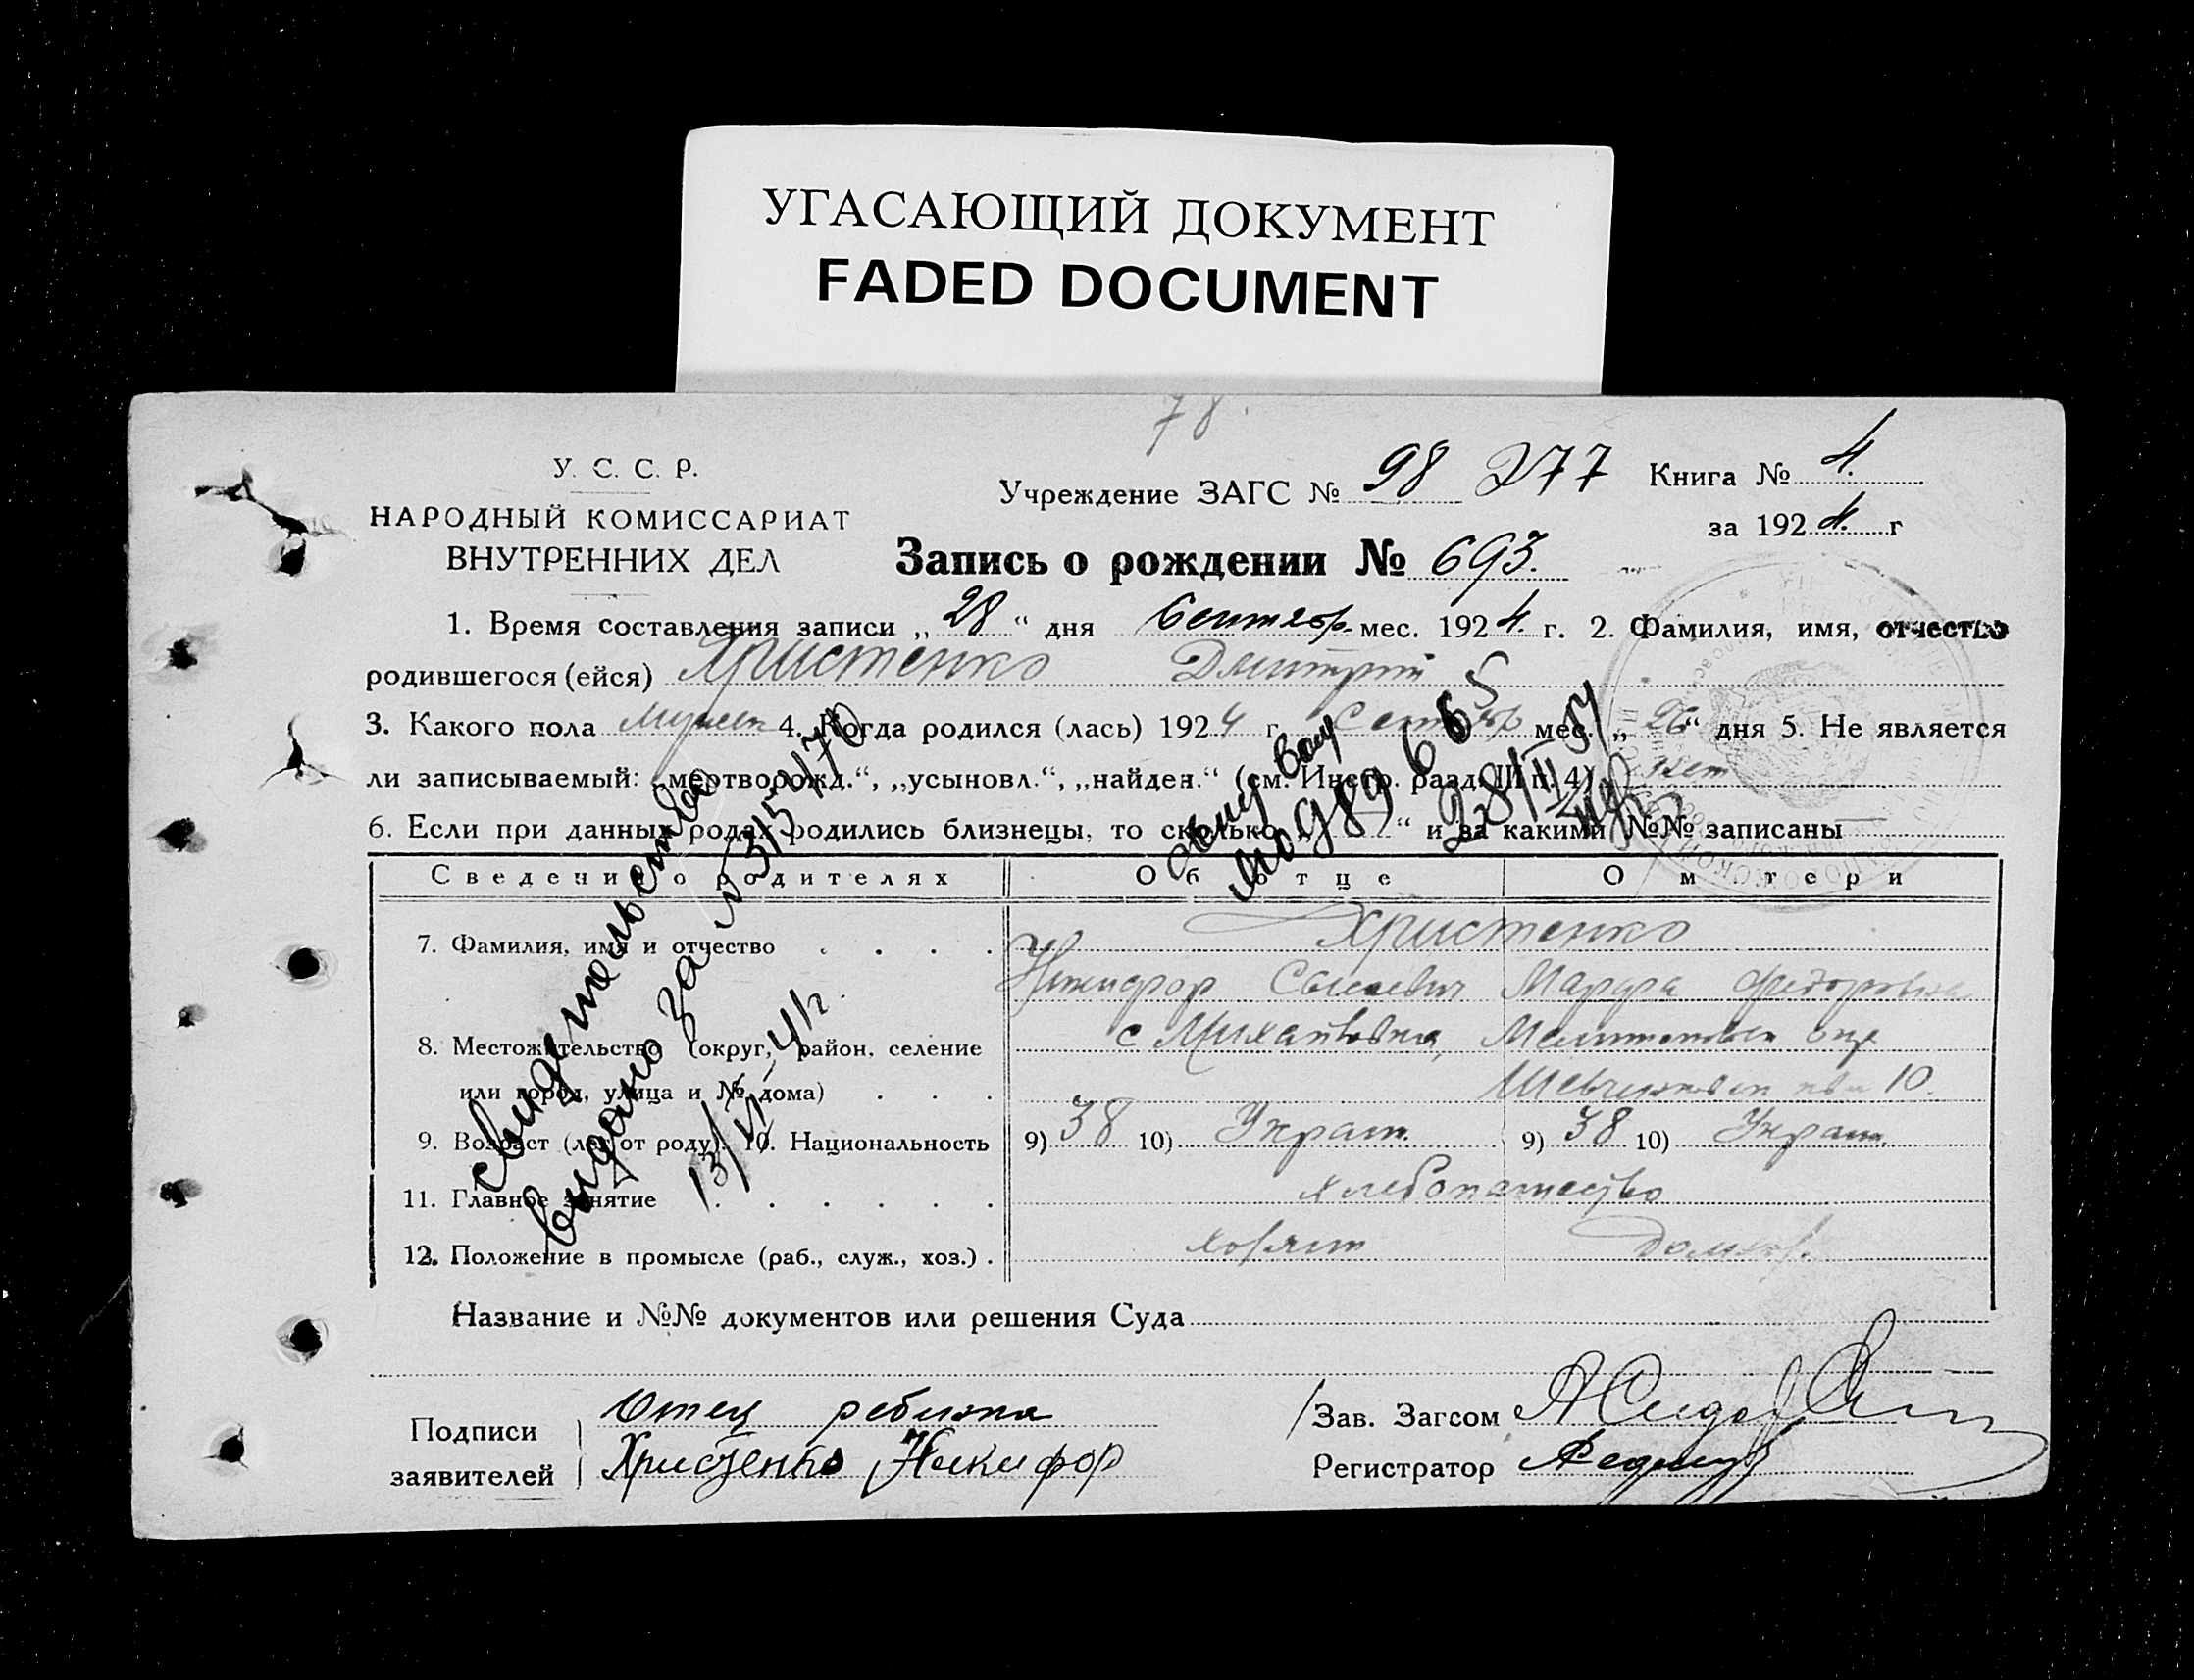 УГАСАЮЩИЙ ДОКУМЕНТ
FADED DOCUMENT
78.
У. С. С. Р.
НАРОДНЫЙ КОМИССАРИАТ
ВНУТРЕННИХ ДЕЛ
Учреждение ЗАГС № 98 277 Книга № 4.
за 1924. г
Запись о рождении № 693.
1. Время составления записи „28“ дня Сентябр. мес. 1924. г. 2. Фамилия, имя, отчество
родившегося (ейся) Христенко Дмитрий
3. Какого пола мужск 4. Когда родился (лась) 1924 г. Сентябр мес. „26“ дня 5. Не является
ли записываемый: „мертворожд.“, „усыновл.“, „найден.“ (см. Инстр. разд. III п. 4) нет
6. Если при данных родах родились близнецы, то сколько „ — “ и за какими №№ записаны —
Сведения о родителях Об отце О матери
7. Фамилия, имя и отчество . . . . Христенко
Никифор Марфа Федоровна
8. Местожительство (округ, район, селение с Михайловка, Мелитопольск окр
или город, улица и № дома) . . . 10.
9. Возраст (лет от роду). 10. Национальность 9) 38 10) Украин. 9) 38 10) Украин.
11. Главное занятие . . . . . . хлебопашество
12. Положение в промысле (раб., служ., хоз.) . хозяин домхоз.
Свидетельство
выдано за № 315470
13/VI 41г
98966 5
28/II 51
Название и №№ документов или решения Суда
Подписи заявителей Отец ребенка
Христенко Никифор
Зав. Загсом
Регистратор